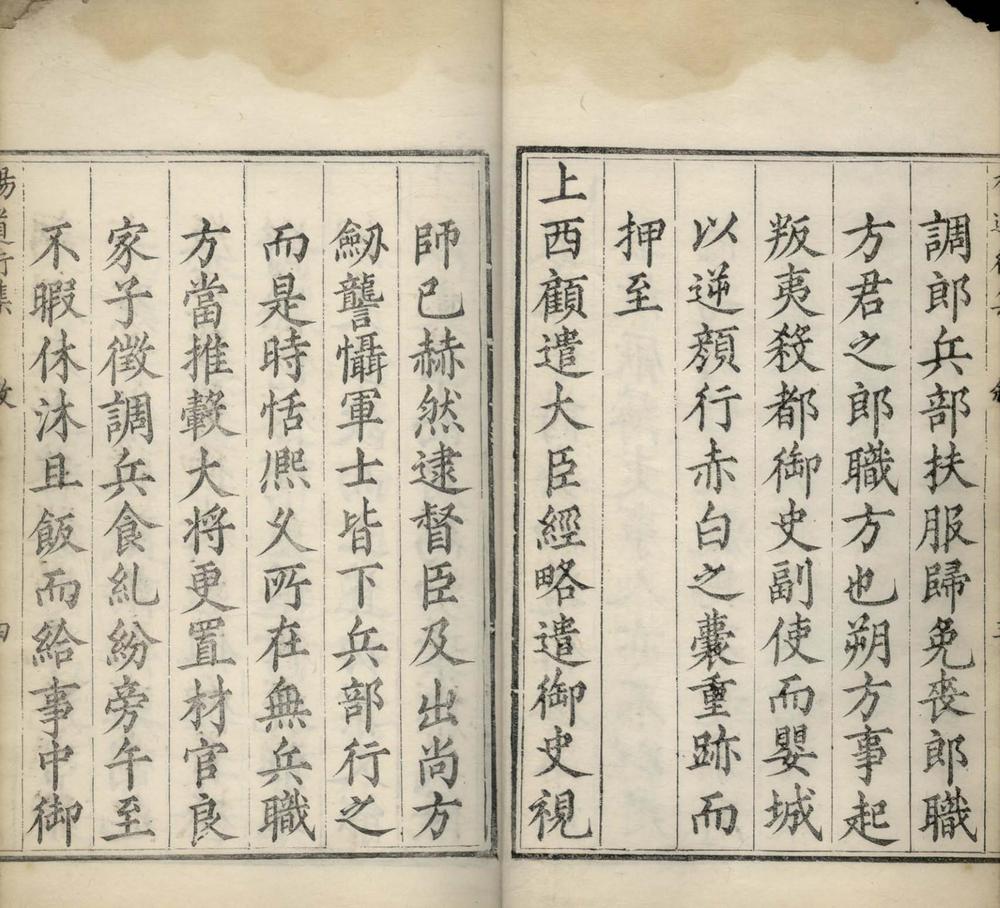 調郎兵部扶服歸免喪郎職
方君之郎職方也朔方事起
叛夷殺都御史副使而嬰城
以逆顏行赤白之囊重跡而
押至
上西顧遣大臣經略遣御史視
師已赫然逮督臣及出尚方
劒讋懾軍士皆下兵部行之
而是時恬熈久所在無兵職
方當推轂大将更置材官良
家子徵調兵食糺紛旁午至
不暇休沐且飯而給事中御